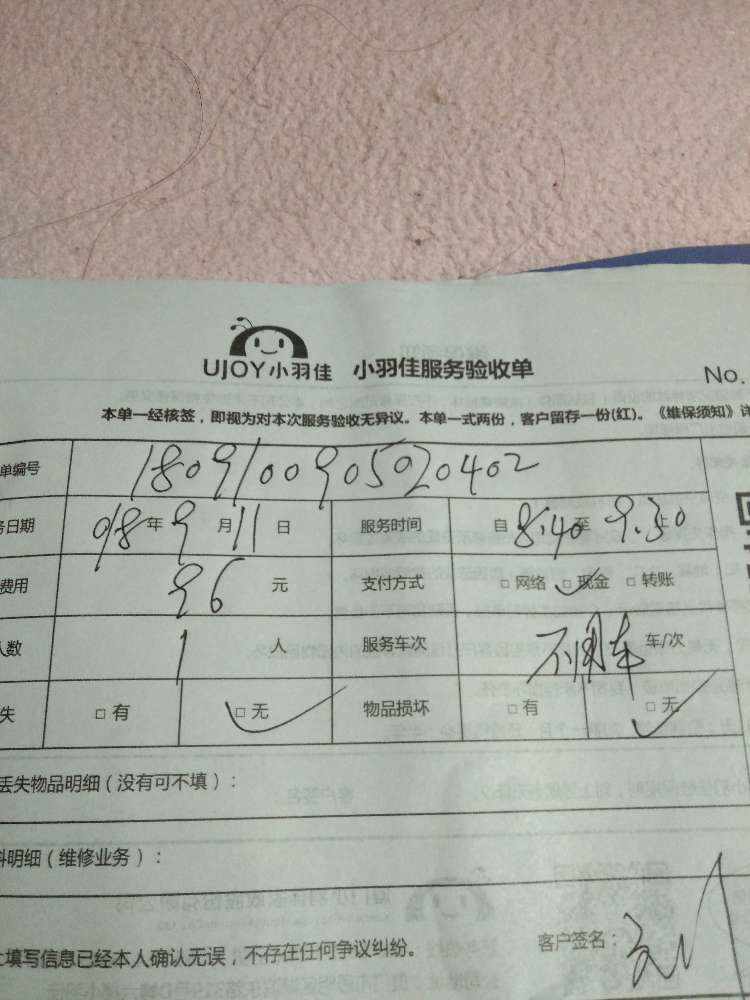 UJOY小羽佳 小羽佳服务验收单
No.
本单一经核签，即视为对本次服务验收无异议。本单一式两份，客户留存一份(红)。《维保须知》详
单编号 1809100905020402
务日期 18年9月11日 服务时间 自8:40至9:30止
费用 96元 支付方式 □网络 □现金 □转账
人数 1人 服务车次 不用车 车/次
失 □有 □无 物品损坏 □有 □无
丢失物品明细（没有可不填）：
料明细（维修业务）：
上填写信息已经本人确认无误，不存在任何争议纠纷。 客户签名：